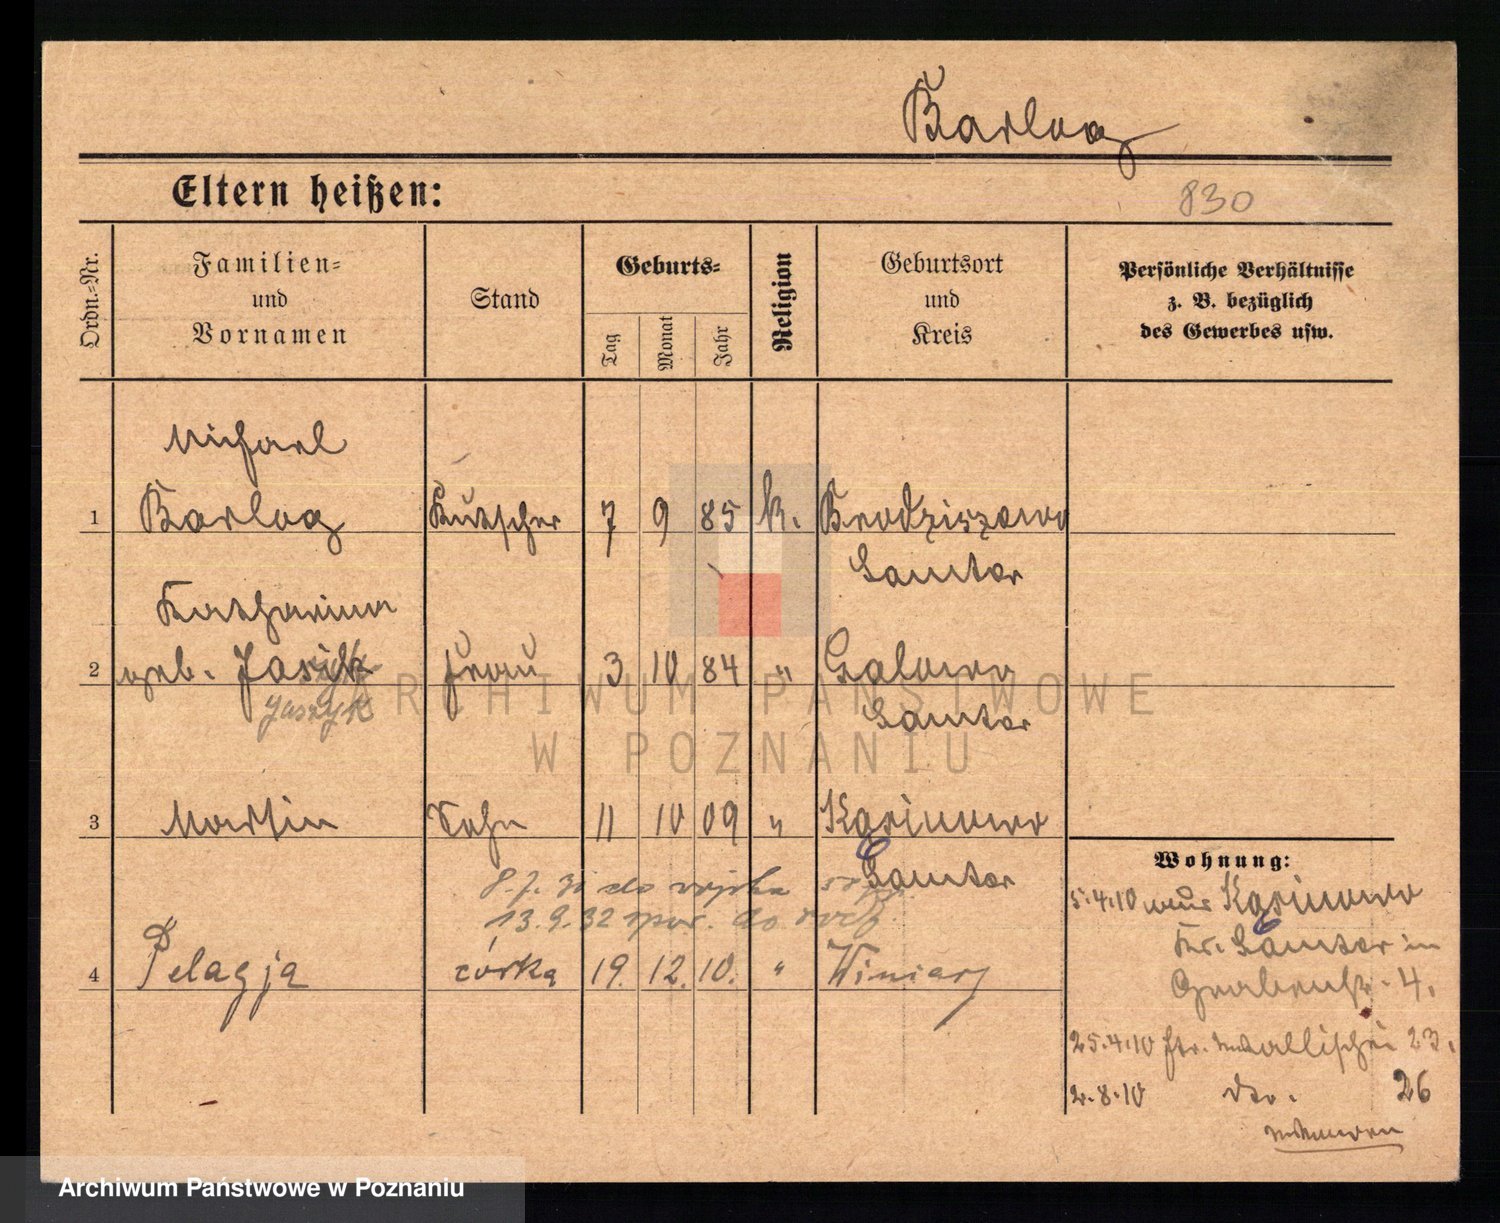 Barlog
Eltern heißen:
830
Ordn.=Nr.
Familien=
und
Vornamen
Stand
Geburts=
Tag
Monat
Jahr
Religion
Geburtsort
und
Kreis
Persönliche Verhältnisse
z. B. bezüglich
des Gewerbes usw.
Michael
1 Barlog Kutscher 7 9 85 k. Brodziszewo
Samter
Katharina
2 geb. Jasik Frau 3 10 84 " Galowo
Jaszyk Samter
3 Martin Sohn 11 10 09 " Kąsinowo
Samter
do wojska
13.9.32 do
4 Pelagja córka 19. 12. 10. " Winiary
Wohnung:
5.4.10 aus Kąsinowo
Kr. Samter in
Grabenstr. 4.
25.4.10 Wallischei 23.
2.8.10 26
ARCHIWUM PAŃSTWOWE
W POZNANIU
Archiwum Państwowe w Poznaniu